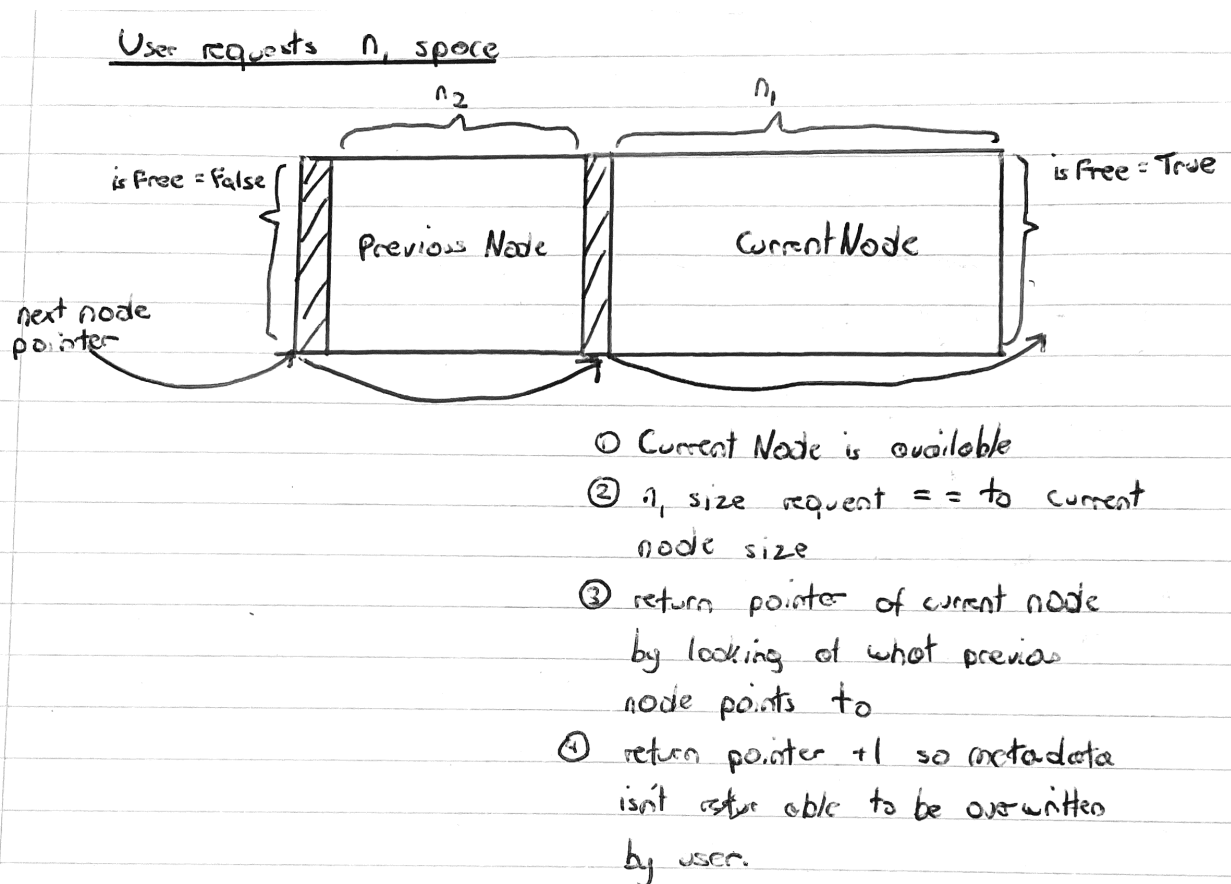 User requests n₁ space
n₂
n₁
is Free = False
is Free = True
Previous Node
Current Node
next node
pointer
① Current Node is available
② n₁ size request == to current
node size
③ return pointer of current node
by looking at what previos
node points to
④ return pointer +1 so metadata
isn't able to be overwritten
by user.